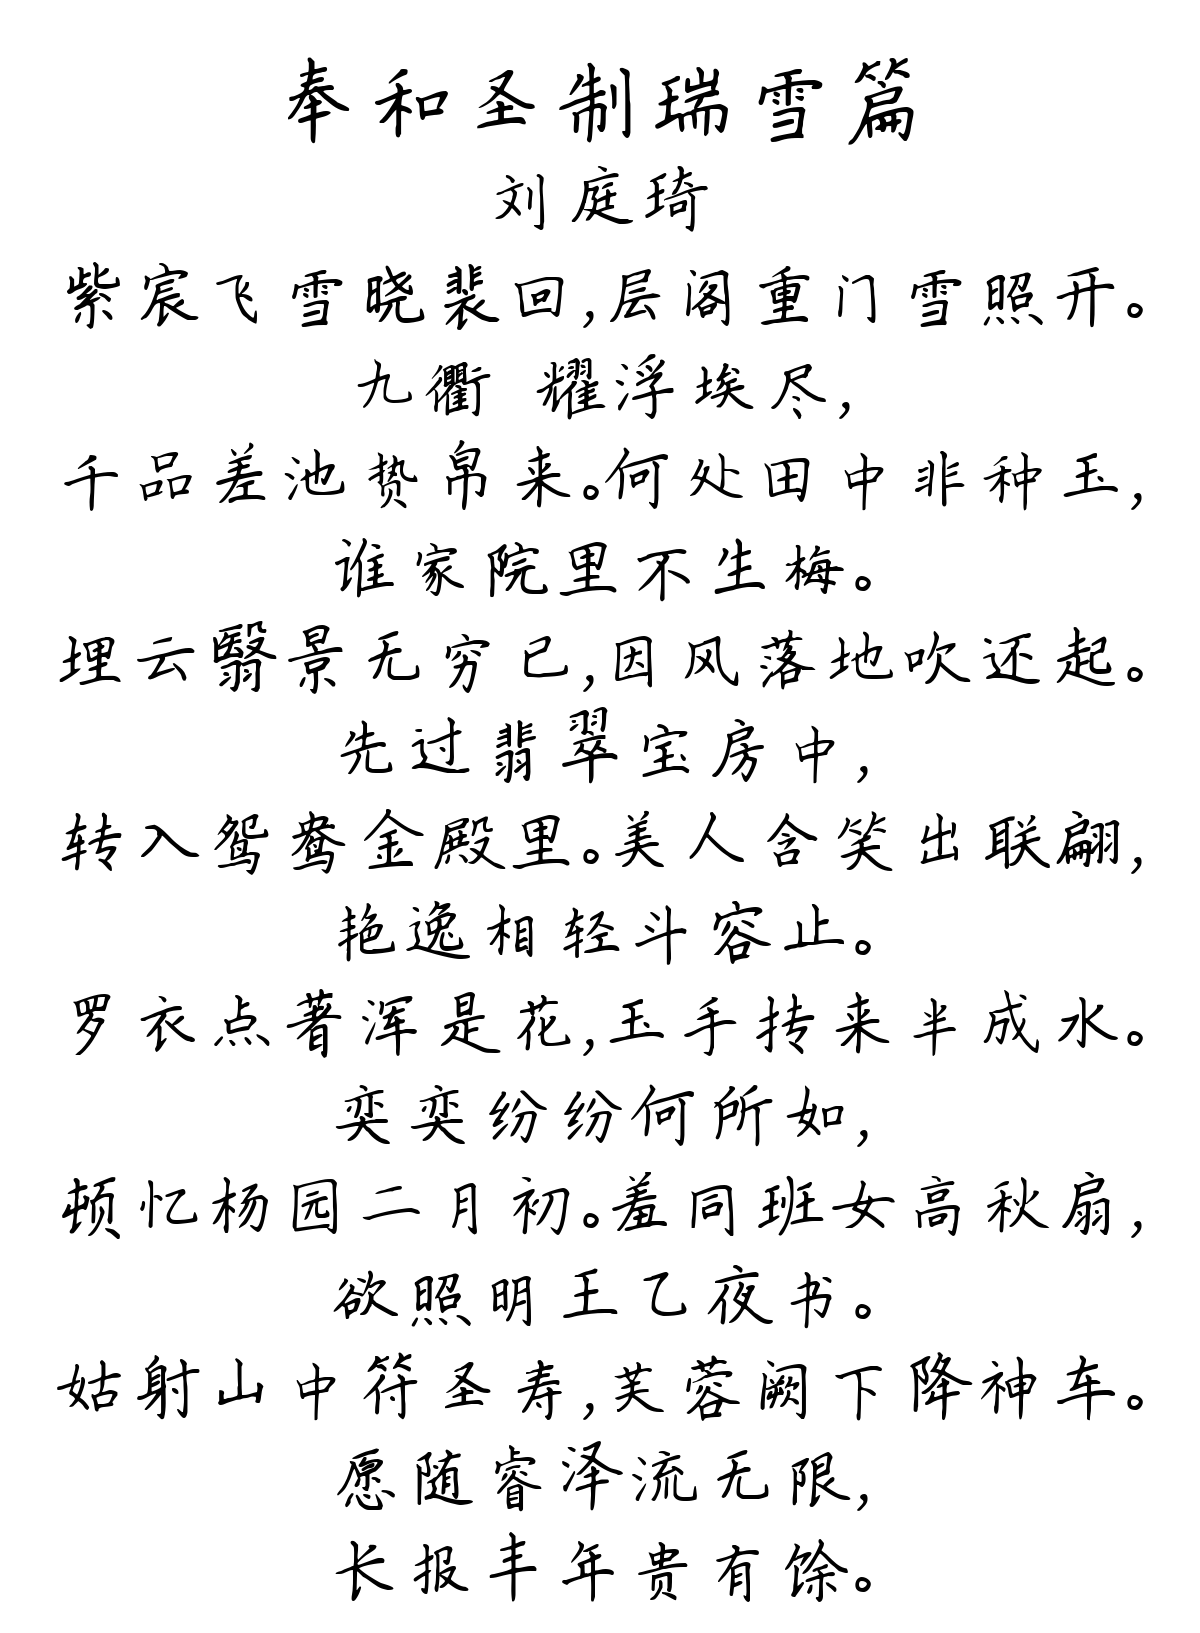 奉和圣制瑞雪篇
刘庭琦
紫宸飞雪晓裴回,层阁重门雪照开。
九衢 耀浮埃尽,
千品差池贽帛来。何处田中非种玉,
谁家院里不生梅。
埋云翳景无穷已,因风落地吹还起。
先过翡翠宝房中,
转入鸳鸯金殿里。美人含笑出联翩,
艳逸相轻斗容止。
罗衣点著浑是花,玉手抟来半成水。
奕奕纷纷何所如,
顿忆杨园二月初。羞同班女高秋扇,
欲照明王乙夜书。
姑射山中符圣寿,芙蓉阙下降神车。
愿随睿泽流无限,
长报丰年贵有馀。